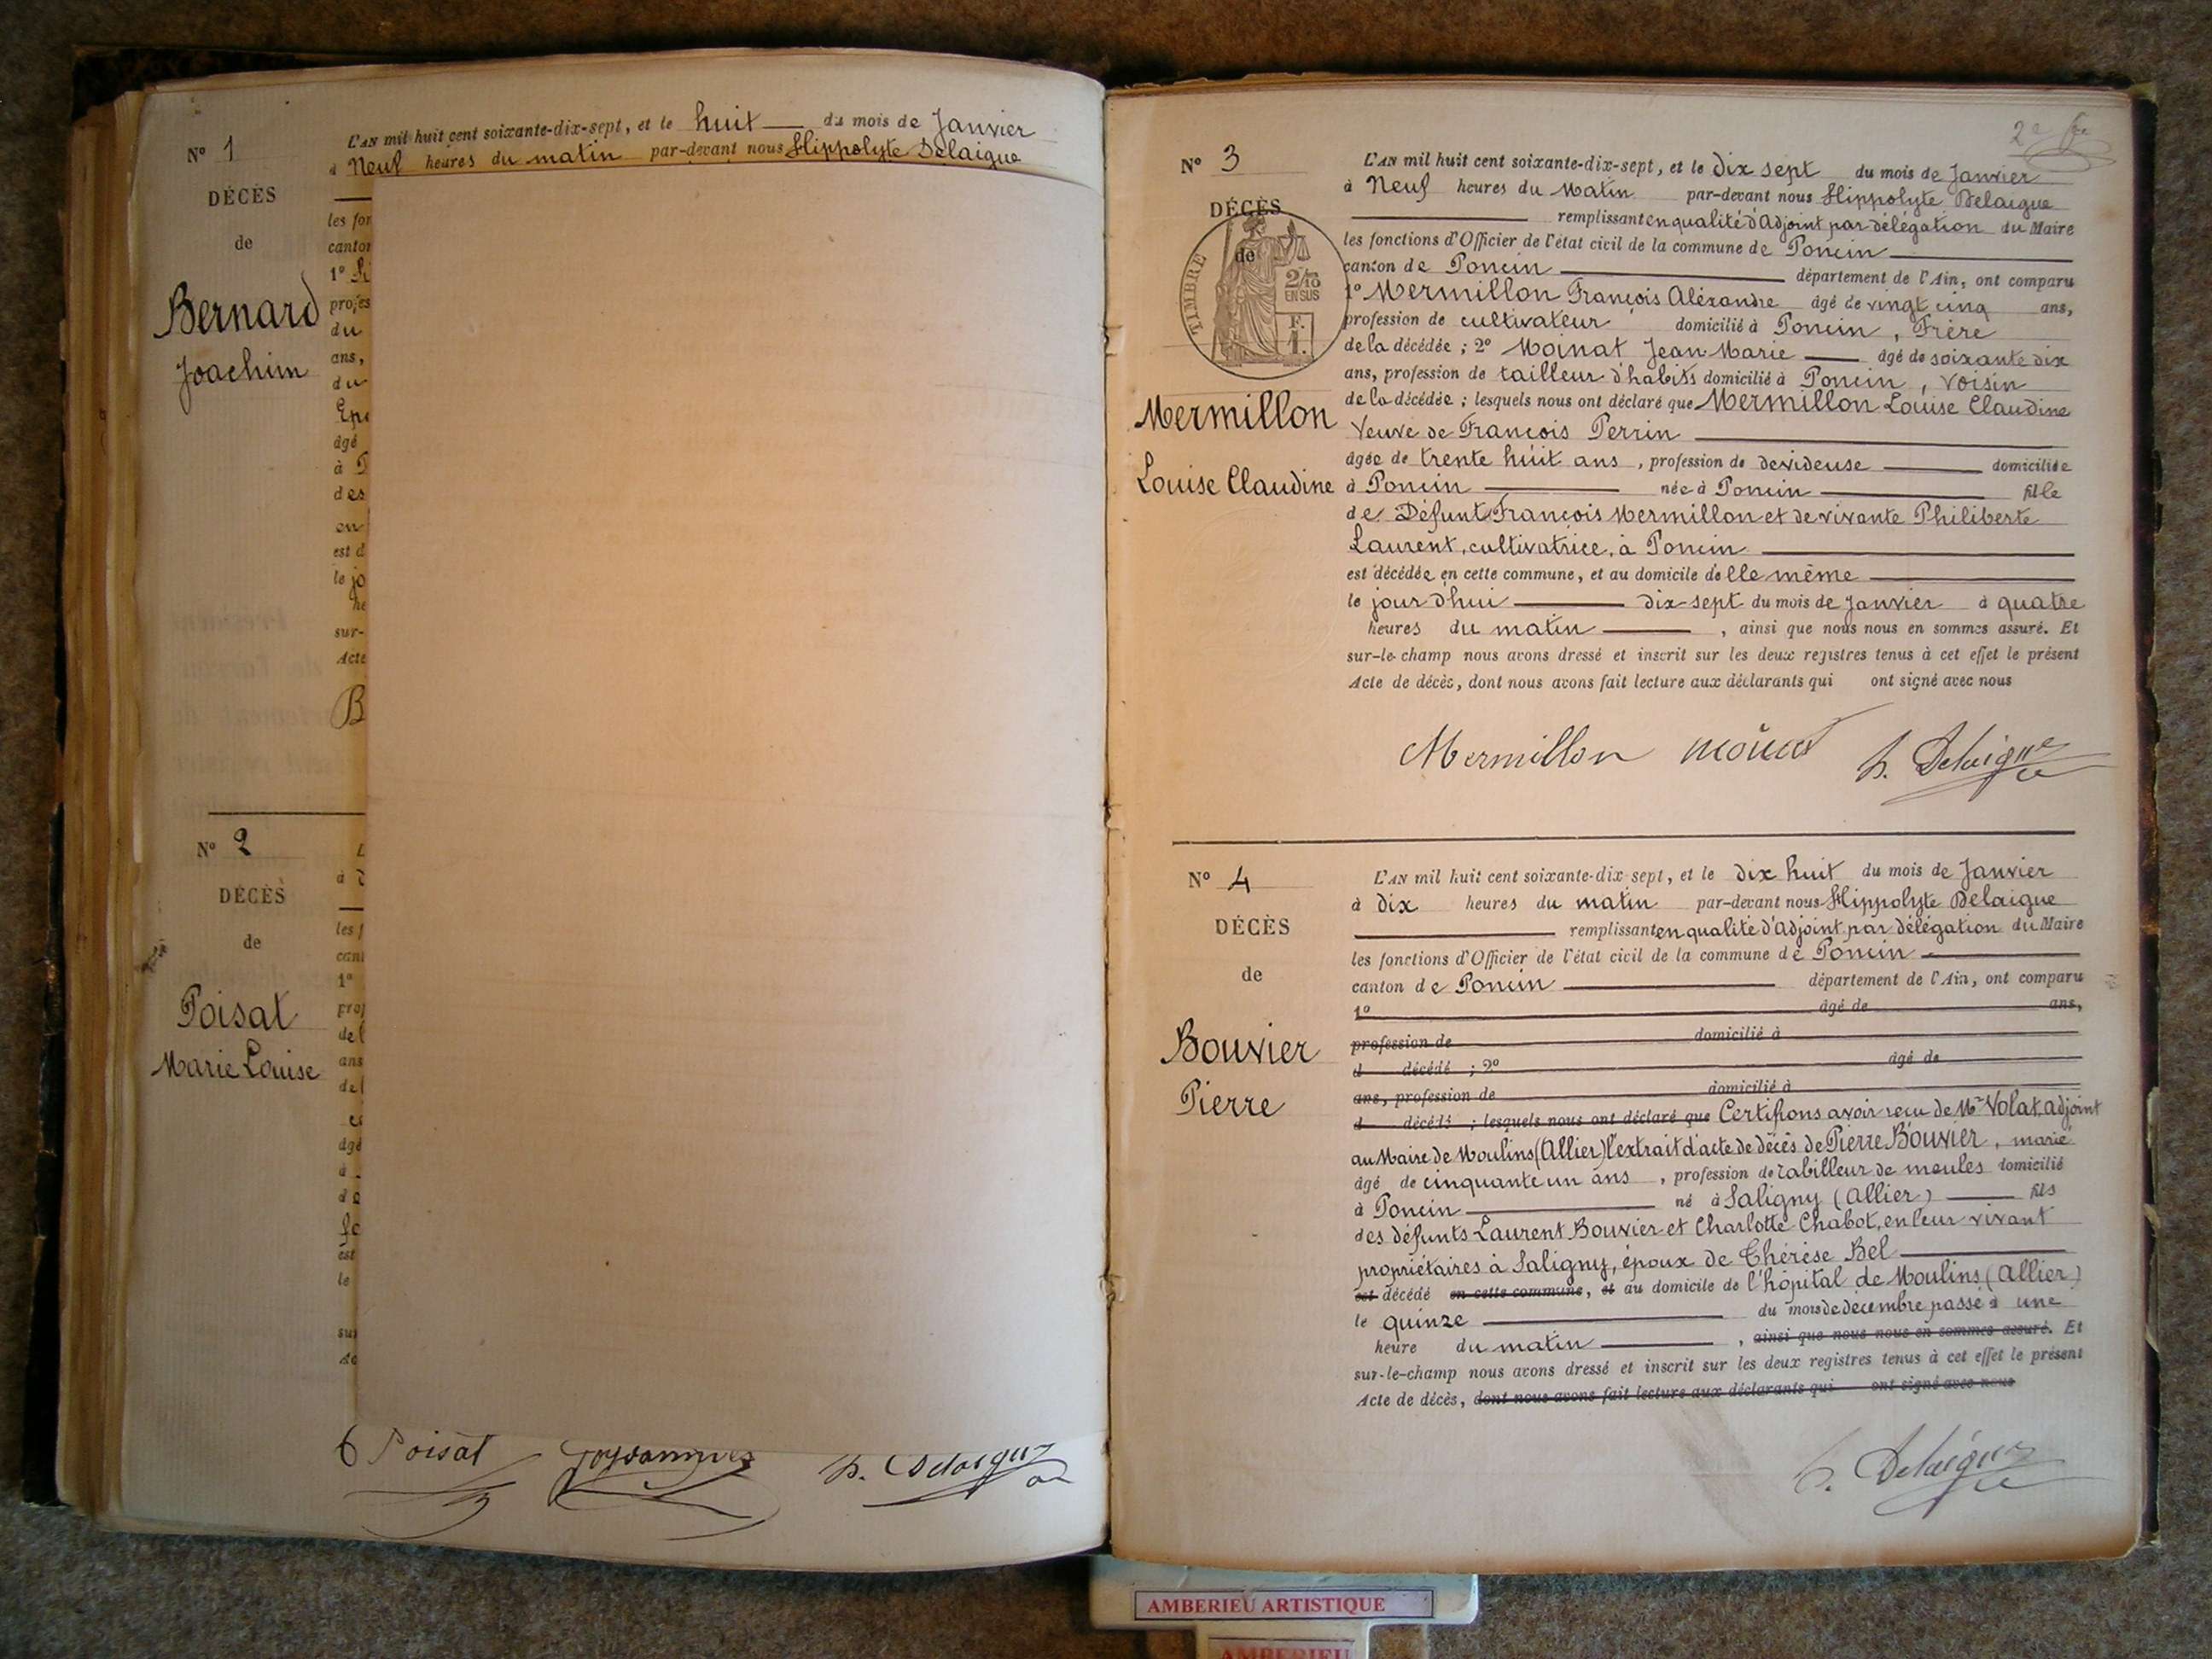 N° 1
L'AN mil huit cent soixante-dix-sept, et le huit du mois de Janvier
à Neuf heures du matin par-devant nous Hippolyte Delaigue
DÉCÈS
de
Bernard
Joachim
les for
canton
1°
profes
du
ans,
du
âgé
à
des
en
est d
le jo
he
sur-
Acte
B
N° 2
DÉCÈS
de
Poisat
Marie Louise
à
les f
can
1°
prof
del
ans
del
âgé
à
est
le
sur
Poisat H. Delaigue
2e
N° 3
DÉCÈS
de
TIMBRE
2/10
EN SUS
F.
1.
Mermillon
Louise Claudine
L'AN mil huit cent soixante-dix-sept, et le dix sept du mois de Janvier
à Neuf heures du matin par-devant nous Hippolyte Delaigue
remplissant en qualité d'adjoint par délégation du Maire
les fonctions d'Officier de l'état civil de la commune de Poncin
canton de Poncin département de l'Ain, ont comparu
1° Mermillon François Aléxandre âgé de vingt cinq ans,
profession de cultivateur domicilié à Poncin, Frère
de la décédée ; 2° Moinat Jean Marie âgé de soixante dix
ans, profession de tailleur d'habits domicilié à Poncin, voisin
de la décédée ; lesquels nous ont déclaré que Mermillon Louise Claudine
Veuve de François Perrin
âgée de trente huit ans, profession de devideuse domiciliée
à Poncin née à Poncin fille
de Défunt François Mermillon et de vivante Philiberte
Laurent, cultivatrice, à Poncin
est décédée en cette commune, et au domicile d'elle même
le jour d'hui dix sept du mois de Janvier à quatre
heures du matin, ainsi que nous nous en sommes assuré. Et
sur-le-champ nous avons dressé et inscrit sur les deux registres tenus à cet effet le présent
Acte de décès, dont nous avons fait lecture aux déclarants qui ont signé avec nous
Mermillon H. Delaigue
N° 4
DÉCÈS
de
Bouvier
Pierre
L'AN mil huit cent soixante-dix-sept, et le dix huit du mois de Janvier
à dix heures du matin par-devant nous Hippolyte Delaigue
remplissant en qualité d'adjoint par délégation du Maire
les fonctions d'Officier de l'état civil de la commune de Poncin
canton de Poncin département de l'Ain, ont comparu
1° âgé de ans,
profession de domicilié à
d décédé ; 2° âgé de
ans, profession de domicilié à
d décédé ; lesquels nous ont déclaré que Certifions avoir reçu de Mr Volat, adjoint
au Maire de Moulins (Allier) l'extrait d'acte de décès de Pierre Bouvier, marié
âgé de cinquante un ans, profession de rabilleur de meules domicilié
à Poncin né à Saligny (Allier) fils
des défunts Laurent Bouvier et Charlotte Chabot, en leur vivant
propriétaires à Saligny, époux de Thérèse Bel
est décédé en cette commune, et au domicile de l'hôpital de Moulins (Allier)
le quinze du mois de décembre passé à une
heure du matin, ainsi que nous nous en sommes assuré. Et
sur-le-champ nous avons dressé et inscrit sur les deux registres tenus à cet effet le présent
Acte de décès, dont nous avons fait lecture aux déclarants qui ont signé avec nous
H. Delaigue
AMBERIEU ARTISTIQUE
AMBERIEU